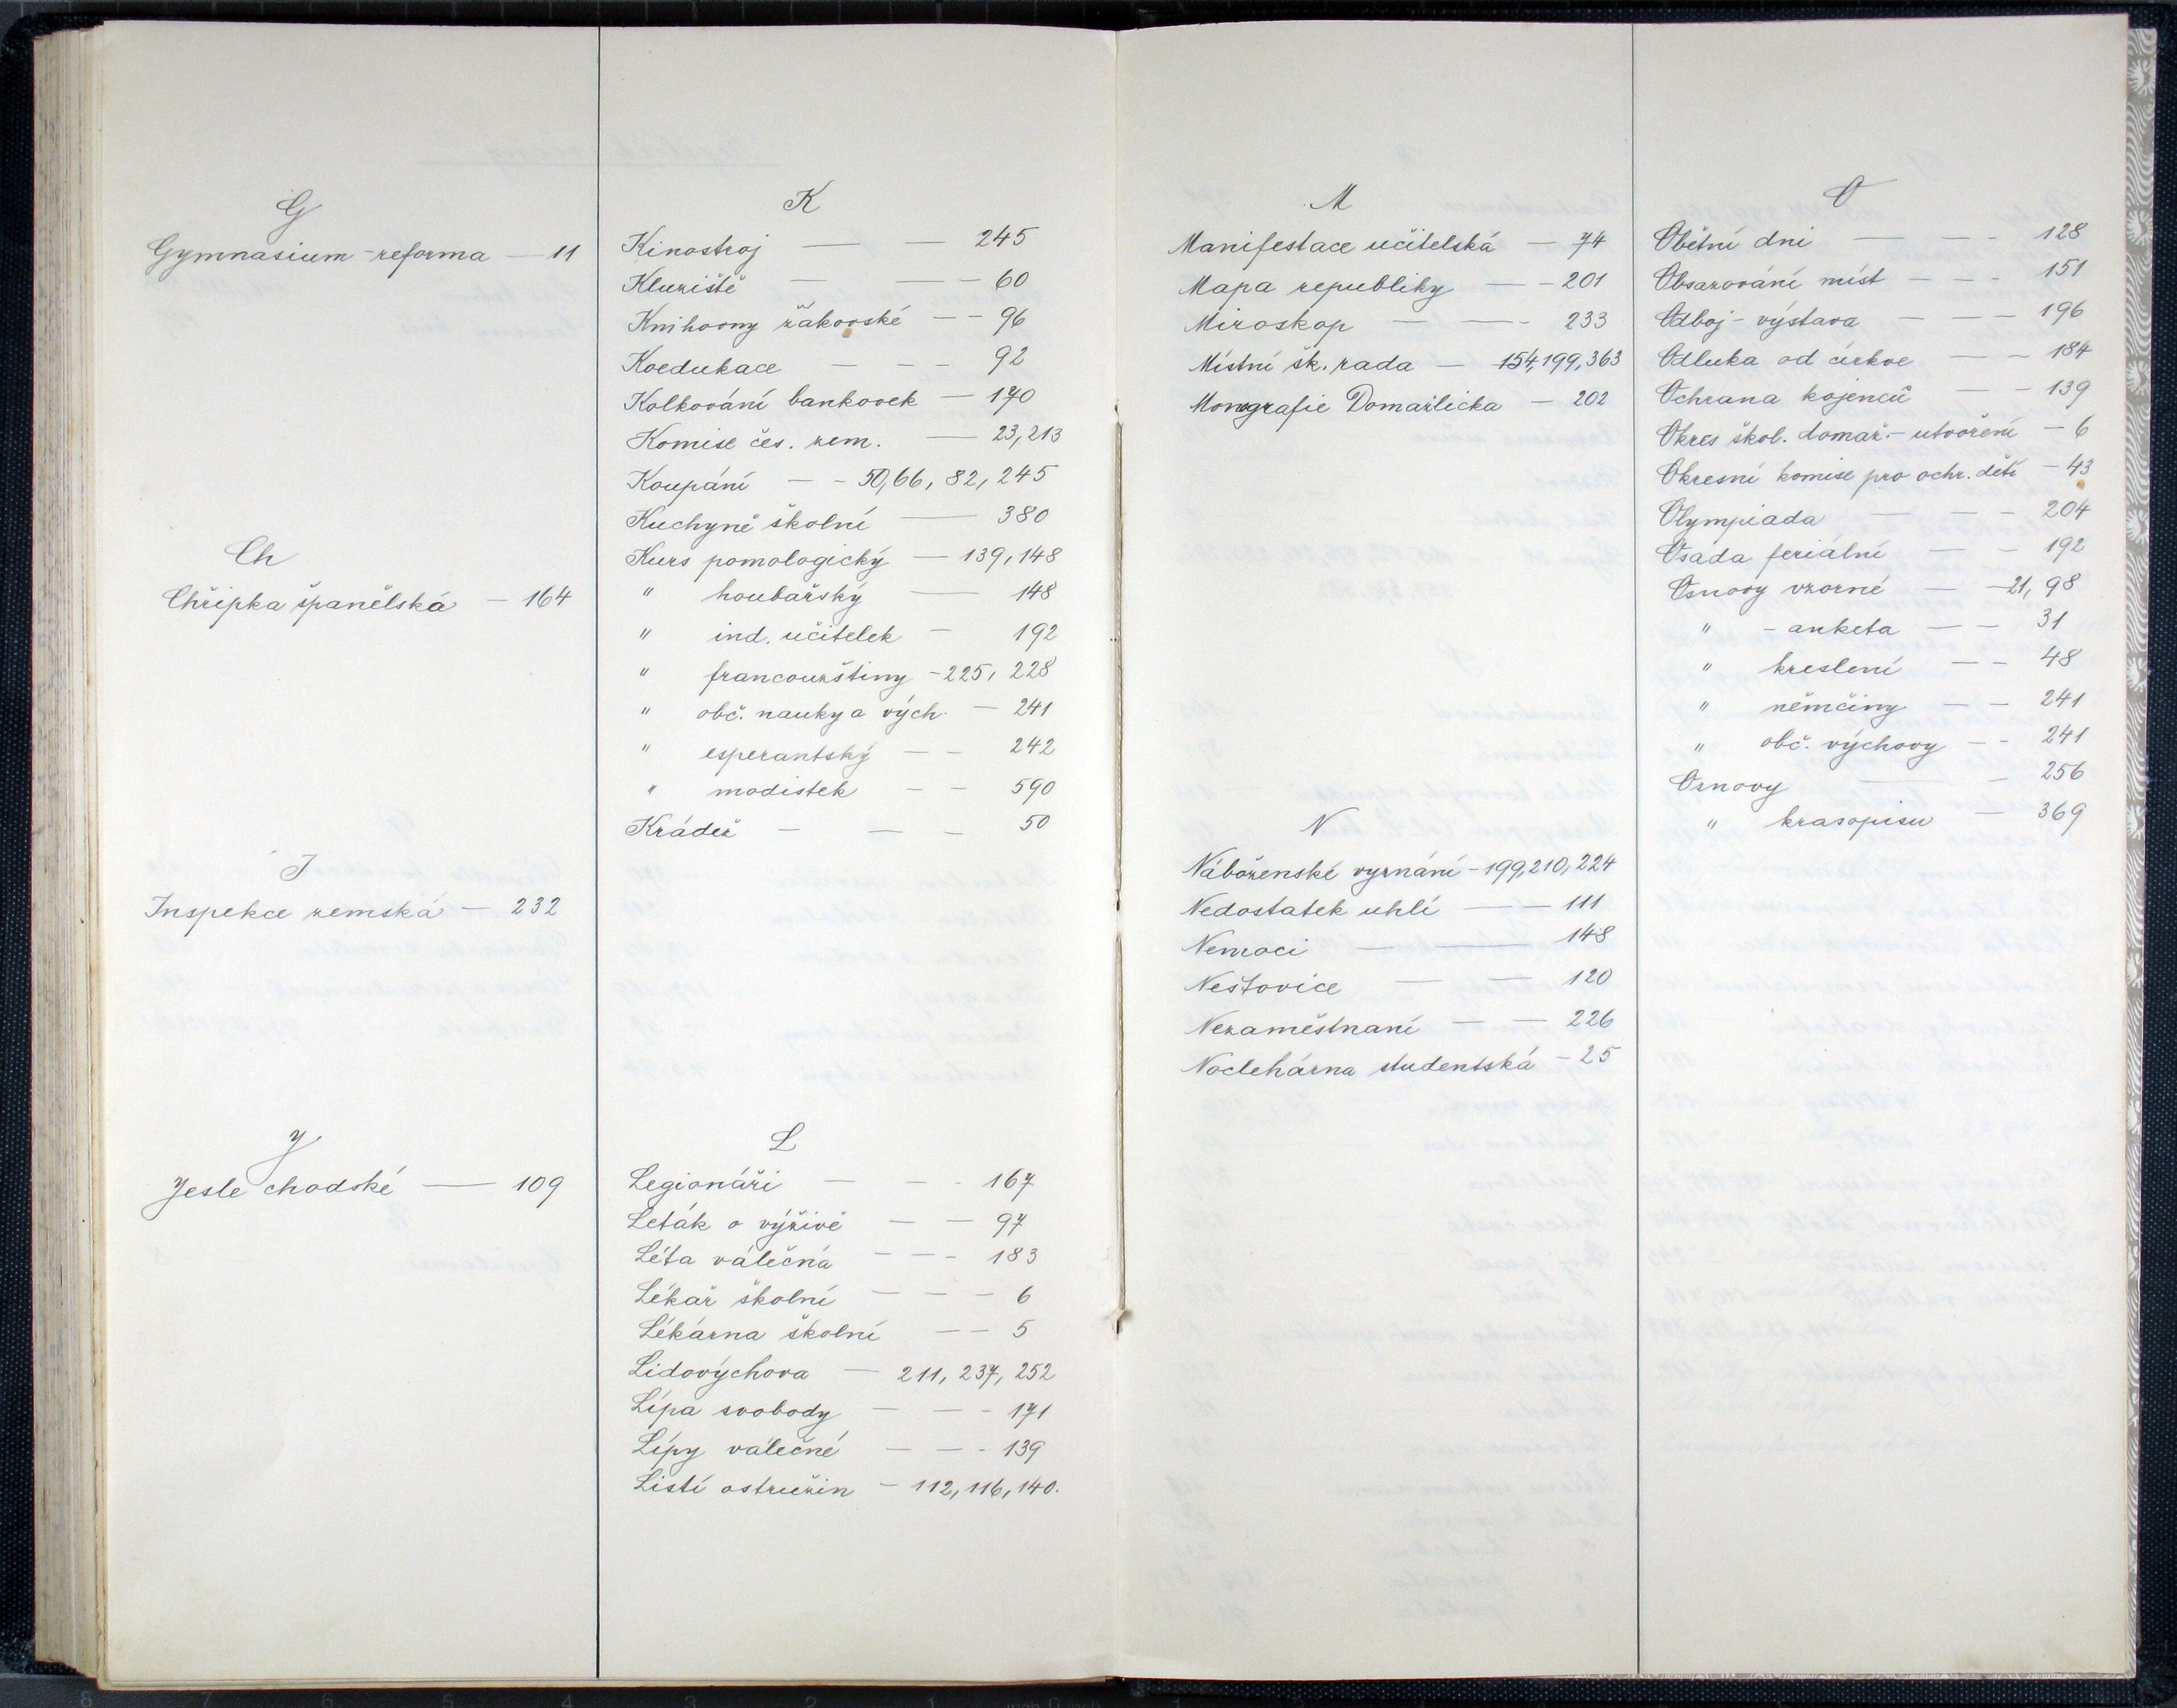 G
Gymnasium - reforma — 11
Ch
Chřipka španělská — 164
I
Inspekce zemská — 232
J
Jesle chodské — 109
K
Kinostroj — — 245
Kluziště — — — 60
Knihovny žákovské — — 96
Koedukace — — — 92
Kolkování bankovek — 170
Komise čes. zem. — 23, 213
Koupání — — 50, 66, 82, 245
Kuchyně školní — 380
Kurs pomologický — 139, 148
" houbařský — 148
" ind. učitelek — 192
" francouzštiny — 225, 228
" obč. nauky a vých. — 241
" esperantský — — 242
" modistek — — 590
Krádež — — — 50
L
Legionáři — — — 167
Leták o výživě — — 97
Léta válečná — — — 183
Lékař školní — — — 6
Lékárna školní — — 5
Lidovýchova — 211, 237, 252
Lípa svobody — — — 171
Lípy válečné — — — 139
Listí ostružin — 112, 116, 140.
M
Manifestace učitelská — 74
Mapa republiky — — 201
Miroskop — — — 233
Místní šk. rada — 154, 199, 363
Monografie Domažlicka — 202
N
Náboženské vyznání — 199, 210, 224
Nedostatek uhlí — — 111
Nemoci — — 148
Neštovice — — 120
Nezaměstnaní — — 226
Noclehárna studentská — 25
O
Obětní dni — — — 128
Obsazování míst — — — 151
Odboj - výstava — — — 196
Odluka od církve — — 184
Ochrana kojenců — — 139
Okres škol. domaž. - utvoření — 6
Okresní komise pro ochr. dětí — 43
Olympiada — — — 204
Osada feriální — — 192
Osnovy vzorné — — 21, 98
" - anketa — — 31
" kreslení — — 48
" němčiny — — 241
" obč. výchovy — — 241
Osnovy — — 256
" krasopisu — 369